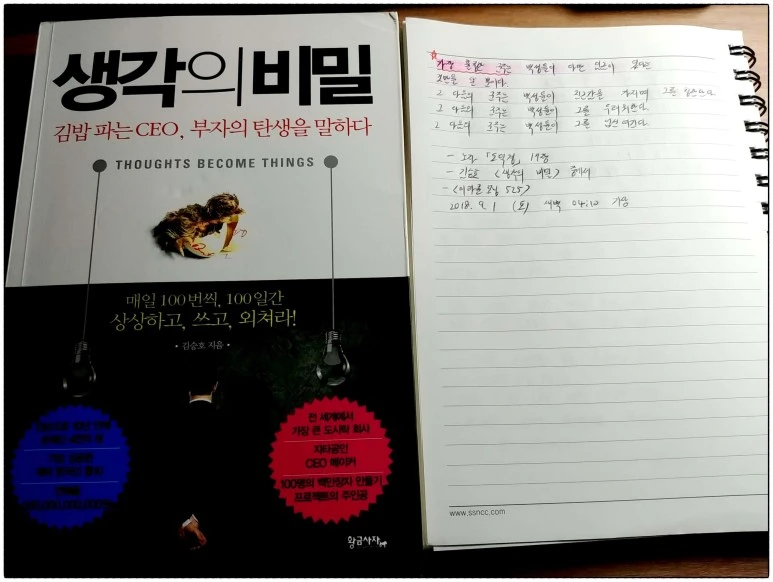 생각의 비밀
김밥 파는 CEO, 부자의 탄생을 말하다
THOUGHTS BECOME THINGS
매일 100번씩, 100일간
상상하고, 쓰고, 외쳐라!
• 김승호 지음 •
전 세계에서
가장 큰 도시락 회사
자타공인
CEO 메이커
100명의 백만장자 만들기
프로젝트의 주인공
황금사자
가장 훌륭한 군주는 백성들이 다만 있다는
것만을 알 뿐이다.
그 다음의 군주는 백성들이 친근감을 가지며 그를 칭찬한다.
그 다음의 군주는 백성들이 그를 두려워한다.
그 다음의 군주는 백성들이 그를 업신여긴다.
- 노자 「도덕경」 17장
- 김승호 <생각의 비밀> 중에서
- <이라클 모닝 525>
2018. 9. 1 (토) 새벽 04:10 기상
www.ssncc.com